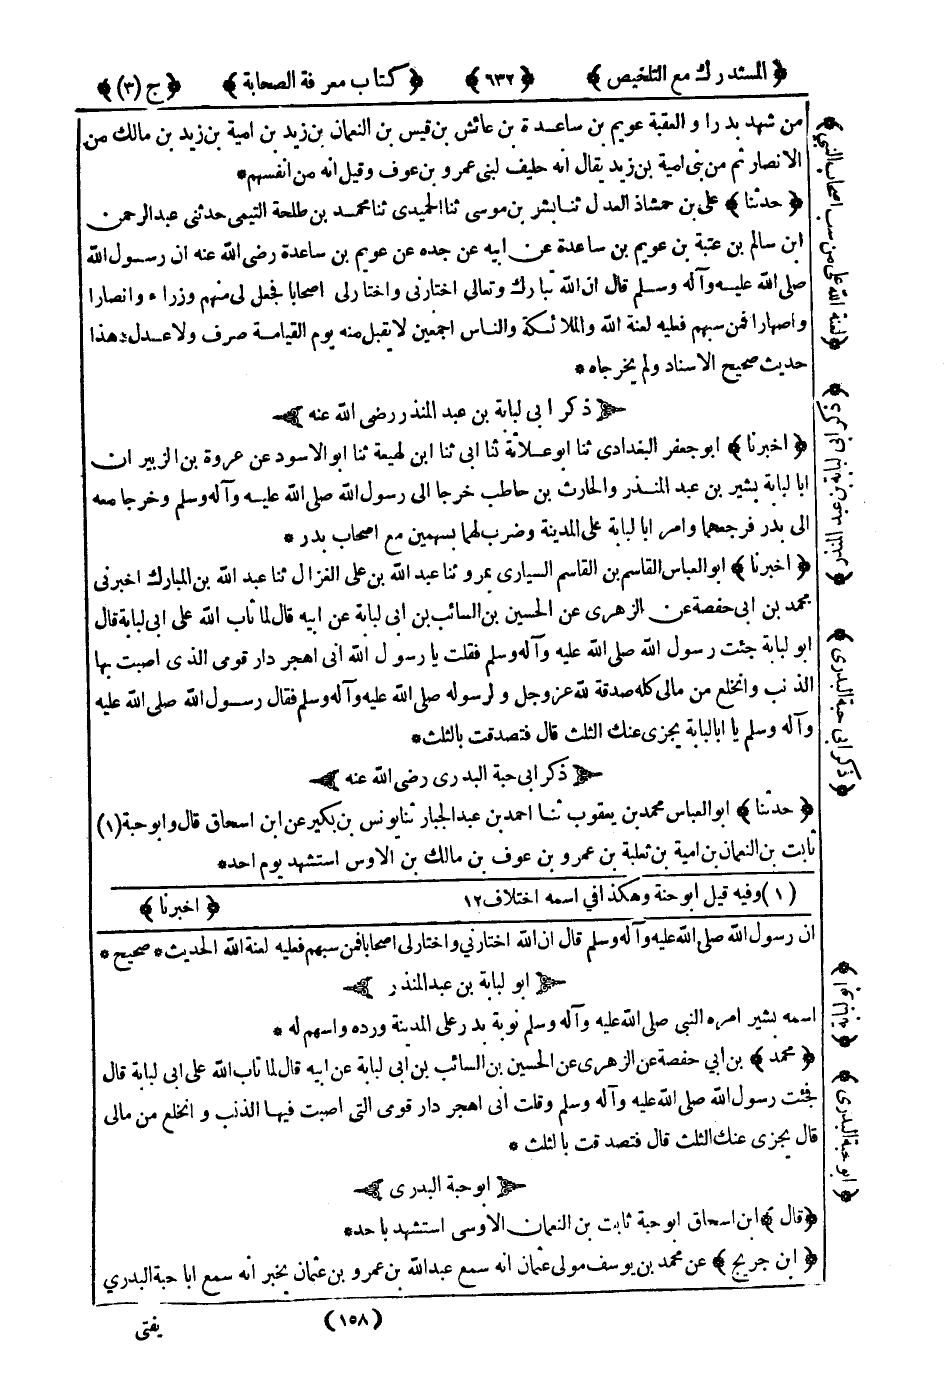 ﴿ المستدرك مع التلخيص ﴾ ﴿ ٦٣٢ ﴾ ﴿ كتاب معرفة الصحابة ﴾ ﴿ ج (٣) ﴾
من شهد بدرا و العقبة عويم بن ساعدة بن عائش بن قيس بن النعمان بن زيد بن امية بن زيد بن مالك من
الانصار ثم من بنى امية بن زيد يقال انه حليف لبنى عمرو بن عوف وقيل انه من انفسهم *
﴿ حدثنا ﴾ على بن حمشاذ العدل ثنا بشر بن موسى ثنا الحميدى ثنا محمد بن طلحة التيمى حدثنى عبد الرحمن
ابن سالم بن عتبة بن عويم بن ساعدة عن ابيه عن جده عن عويم بن ساعدة رضى الله عنه ان رسول الله
صلى الله عليه وآله وسلم قال ان الله تبارك وتعالى اختارنى واختار لى اصحابا فجعل لى منهم وزراء وانصارا
واصهارا فمن سبهم فعليه لعنة الله والملائكة والناس اجمعين لا يقبل منه يوم القيامة صرف ولا عدل * هذا
حديث صحيح الاسناد ولم يخرجاه *
ذكر ابى لبابة بن عبد المنذر رضى الله عنه
﴿ اخبرنا ﴾ ابو جعفر البغدادى ثنا ابو علاثة ثنا ابى ثنا ابن لهيعة ثنا ابو الاسود عن عروة بن الزبير ان
ابا لبابة بشير بن عبد المنذر والحارث بن حاطب خرجا الى رسول الله صلى الله عليه وآله وسلم وخرجا معه
الى بدر فرجعهما وامر ابا لبابة على المدينة وضرب لهما بسهمين مع اصحاب بدر *
﴿ اخبرنا ﴾ ابو العباس القاسم بن القاسم السيارى بمرو ثنا عبد الله بن على الغزال ثنا عبد الله بن المبارك اخبرنى
محمد بن ابى حفصة عن الزهرى عن الحسين بن السائب بن ابى لبابة عن ابيه قال لما تاب الله على ابى لبابة قال
ابو لبابة جئت رسول الله صلى الله عليه وآله وسلم فقلت يا رسول الله انى اهجر دار قومى الذى اصبت بها
الذنب وانخلع من مالى كله صدقة لله عز وجل و لرسوله صلى الله عليه وآله وسلم فقال رسول الله صلى الله عليه
وآله وسلم يا ابا لبابة يجزى عنك الثلث قال فتصدقت بالثلث *
ذكر ابى حبة البدرى رضى الله عنه
﴿ حدثنا ﴾ ابو العباس محمد بن يعقوب ثنا احمد بن عبد الجبار ثنا يونس بن بكير عن ابن اسحاق قال و ابو حبة (١)
ثابت بن النعمان بن امية بن ثعلبة بن عمرو بن عوف بن مالك بن الاوس استشهد يوم احد *
(١) وفيه قيل ابو حنة وهكذا في اسمه اختلاف ١٢ ﴿ اخبرنا ﴾
ان رسول الله صلى الله عليه وآله وسلم قال ان الله اختارني واختار لى اصحابا فمن سبهم فعليه لعنة الله الحديث * صحيح *
ابو لبابة بن عبد المنذر
اسمه بشير امره النبي صلى الله عليه وآله وسلم نوبة بدر على المدينة ورده واسهم له *
﴿ محمد ﴾ بن ابي حفصة عن الزهرى عن الحسين بن السائب بن ابى لبابة عن ابيه قال لما تاب الله على ابى لبابة قال
فجئت رسول الله صلى الله عليه وآله وسلم وقلت انى اهجر دار قومى التى اصبت فيها الذنب و انخلع من مالى
قال يجزى عنك الثلث قال فتصدقت بالثلث *
ابو حبة البدرى
﴿ قال ﴾ ابن اسحاق ابو حبة ثابت بن النعمان الاوسى استشهد باحد *
﴿ ابن جريج ﴾ عن محمد بن يوسف مولى عثمان انه سمع عبد الله بن عمرو بن عثمان يخبر انه سمع ابا حبة البدري
(١٥٨)
يفتى
﴿ لعنة الله على من سب اصحاب النبي ﴾
﴿ ذكر ابى حبة البدرى ﴾
﴿ ابو حبة البدرى ﴾